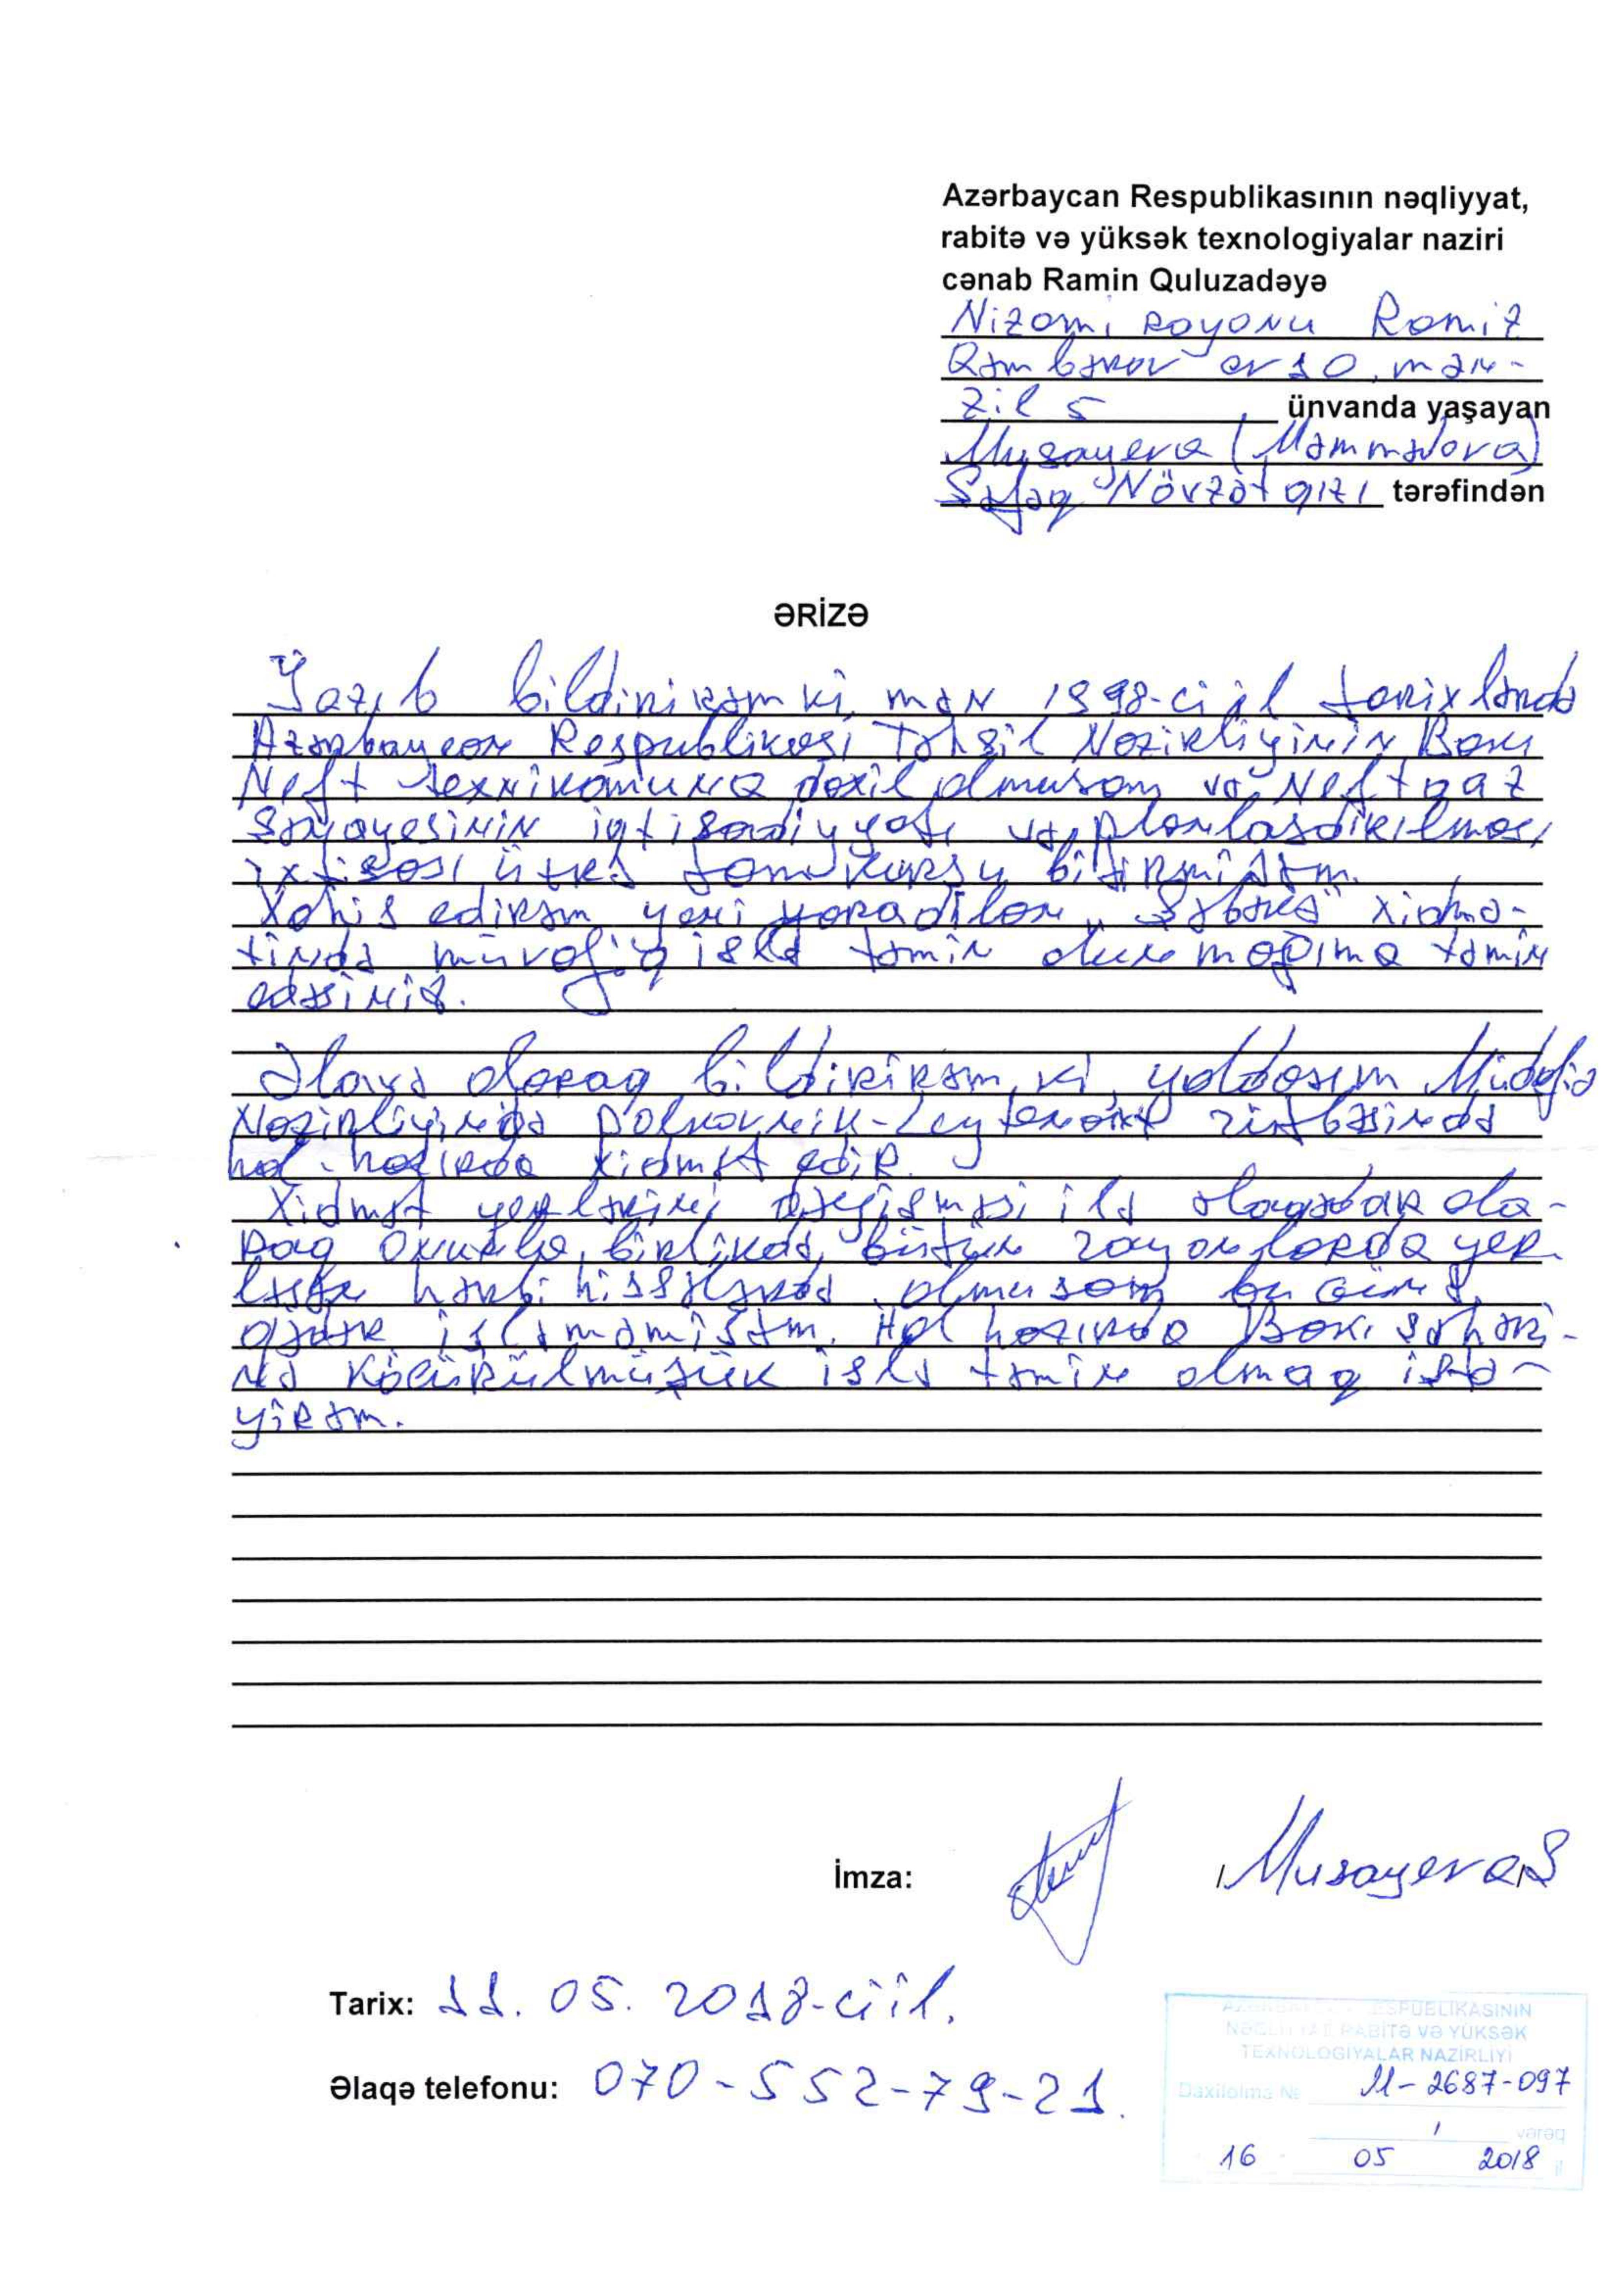 Azərbaycan Respublikasının nəqliyyat,
rabitə və yüksək texnologiyalar naziri
cənab Ramin Quluzadəyə
Nizami rayonu Ramiz
Qəmbərov ev 10. mən-
zil 5 ünvanda yaşayan
Musayeva (Məmmədova)
Şəfəq Növzət qızı tərəfindən
ƏRİZƏ
Yazıb bildirirəm ki, mən 1998-ci il tarixlərdə
Azərbaycan Respublikası Təhsil Nazirliyinin Bakı
Neft texnikomuna daxil olmuşam və Neft qaz
sənayesinin iqtisadiyyatı və planlaşdırılması
ixtisası üzrə tam kursu bitirmişəm.
Xahiş edirəm yeni yaradılan "Şəbəkə" xidmə-
tində müvafiq işlə təmin olunmağıma təmin
edəsiniz.
Əlavə olaraq bildirirəm ki, yoldaşım Müdafiə
Nazirliyində polkovnik-leytenant rütbəsində
hal-hazırda xidmət edir.
Xidmət yerlərini dəyişməsi ilə əlaqədar ola-
raq onunla birlikdə bütün rayonlarda yer-
ləşən hərbi hissələrdə olmuşam bu günə
qədər işləməmişəm. Hal hazırda Bakı şəhəri-
nə köçürülmüşük işlə təmin olmaq istə-
yirəm.
İmza: / Musayeva Ş
Tarix: 11.05.2018-ci il.
Əlaqə telefonu: 070-552-79-21.
AZƏRBAYCAN RESPUBLİKASININ
NƏQLİYYAT, RABİTƏ VƏ YÜKSƏK
TEXNOLOGİYALAR NAZİRLİYİ
Daxilolma № 11-2687-097
1 vərəq
16 05 2018 il